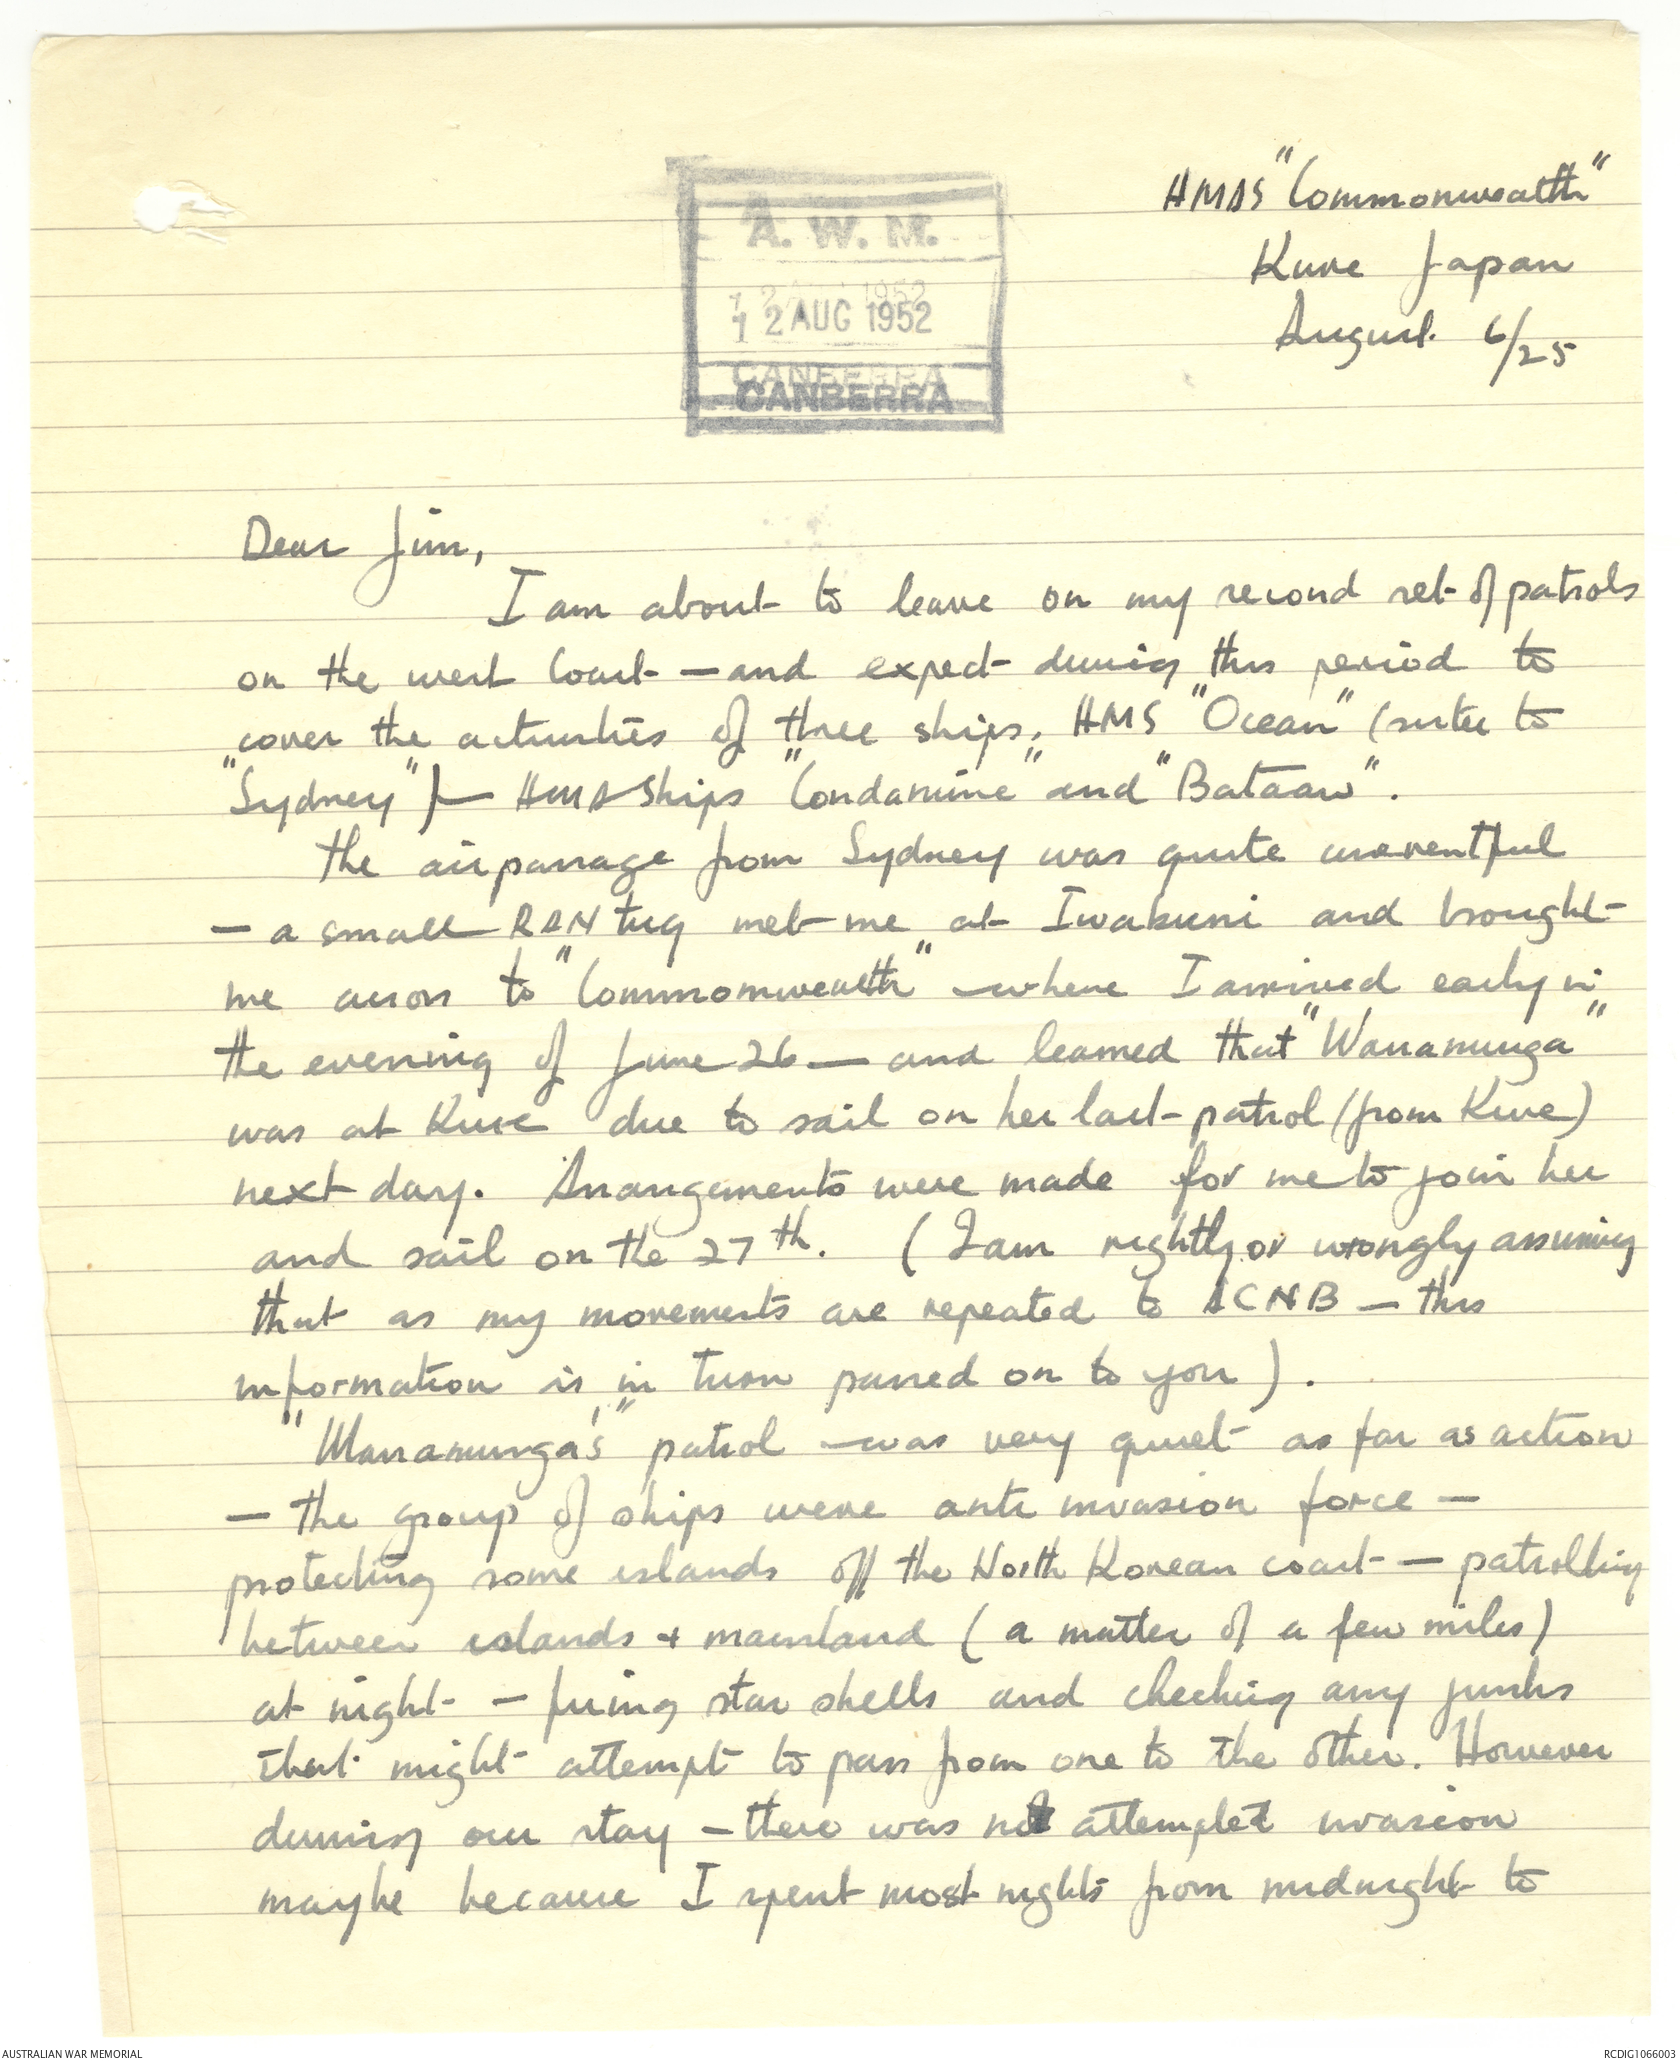 HMAS "Commonwealth"
Kure Japan
August 6/25
A. W. M.
12 AUG 1952
CANBERRA
Dear Jim,
I am about to leave on my second set of patrols
on the west coast - and expect during this period to
cover the activities of three ships, HMS "Ocean" (sister to
"Sydney") - HMA Ships "Condamine" and "Bataan".
The air passage from Sydney was quite uneventful
- a small RAN tug met me at Iwakuni and brought
me across to "Commonwealth" - where I arrived early in
the evening of June 26 - and learned that "Warramunga"
was at Kure due to sail on her last patrol (from Kure)
next day. Arrangements were made for me to join her
and sail on the 27th. (I am rightly or wrongly assuming
that as my movements are repeated to ACNB - this
information is in turn passed on to you).
"Warramunga's" patrol - was very quiet as far as action
- the group of ships were anti invasion force -
protecting some islands off the North Korean coast - patrolling
between islands + mainland (a matter of a few miles)
at night - firing star shells and checking any junks
that might attempt to pass from one to the other. However
during our stay - there was no attempted invasion
maybe because I spent most nights from midnight to
AUSTRALIAN WAR MEMORIAL
RCDIG1066003